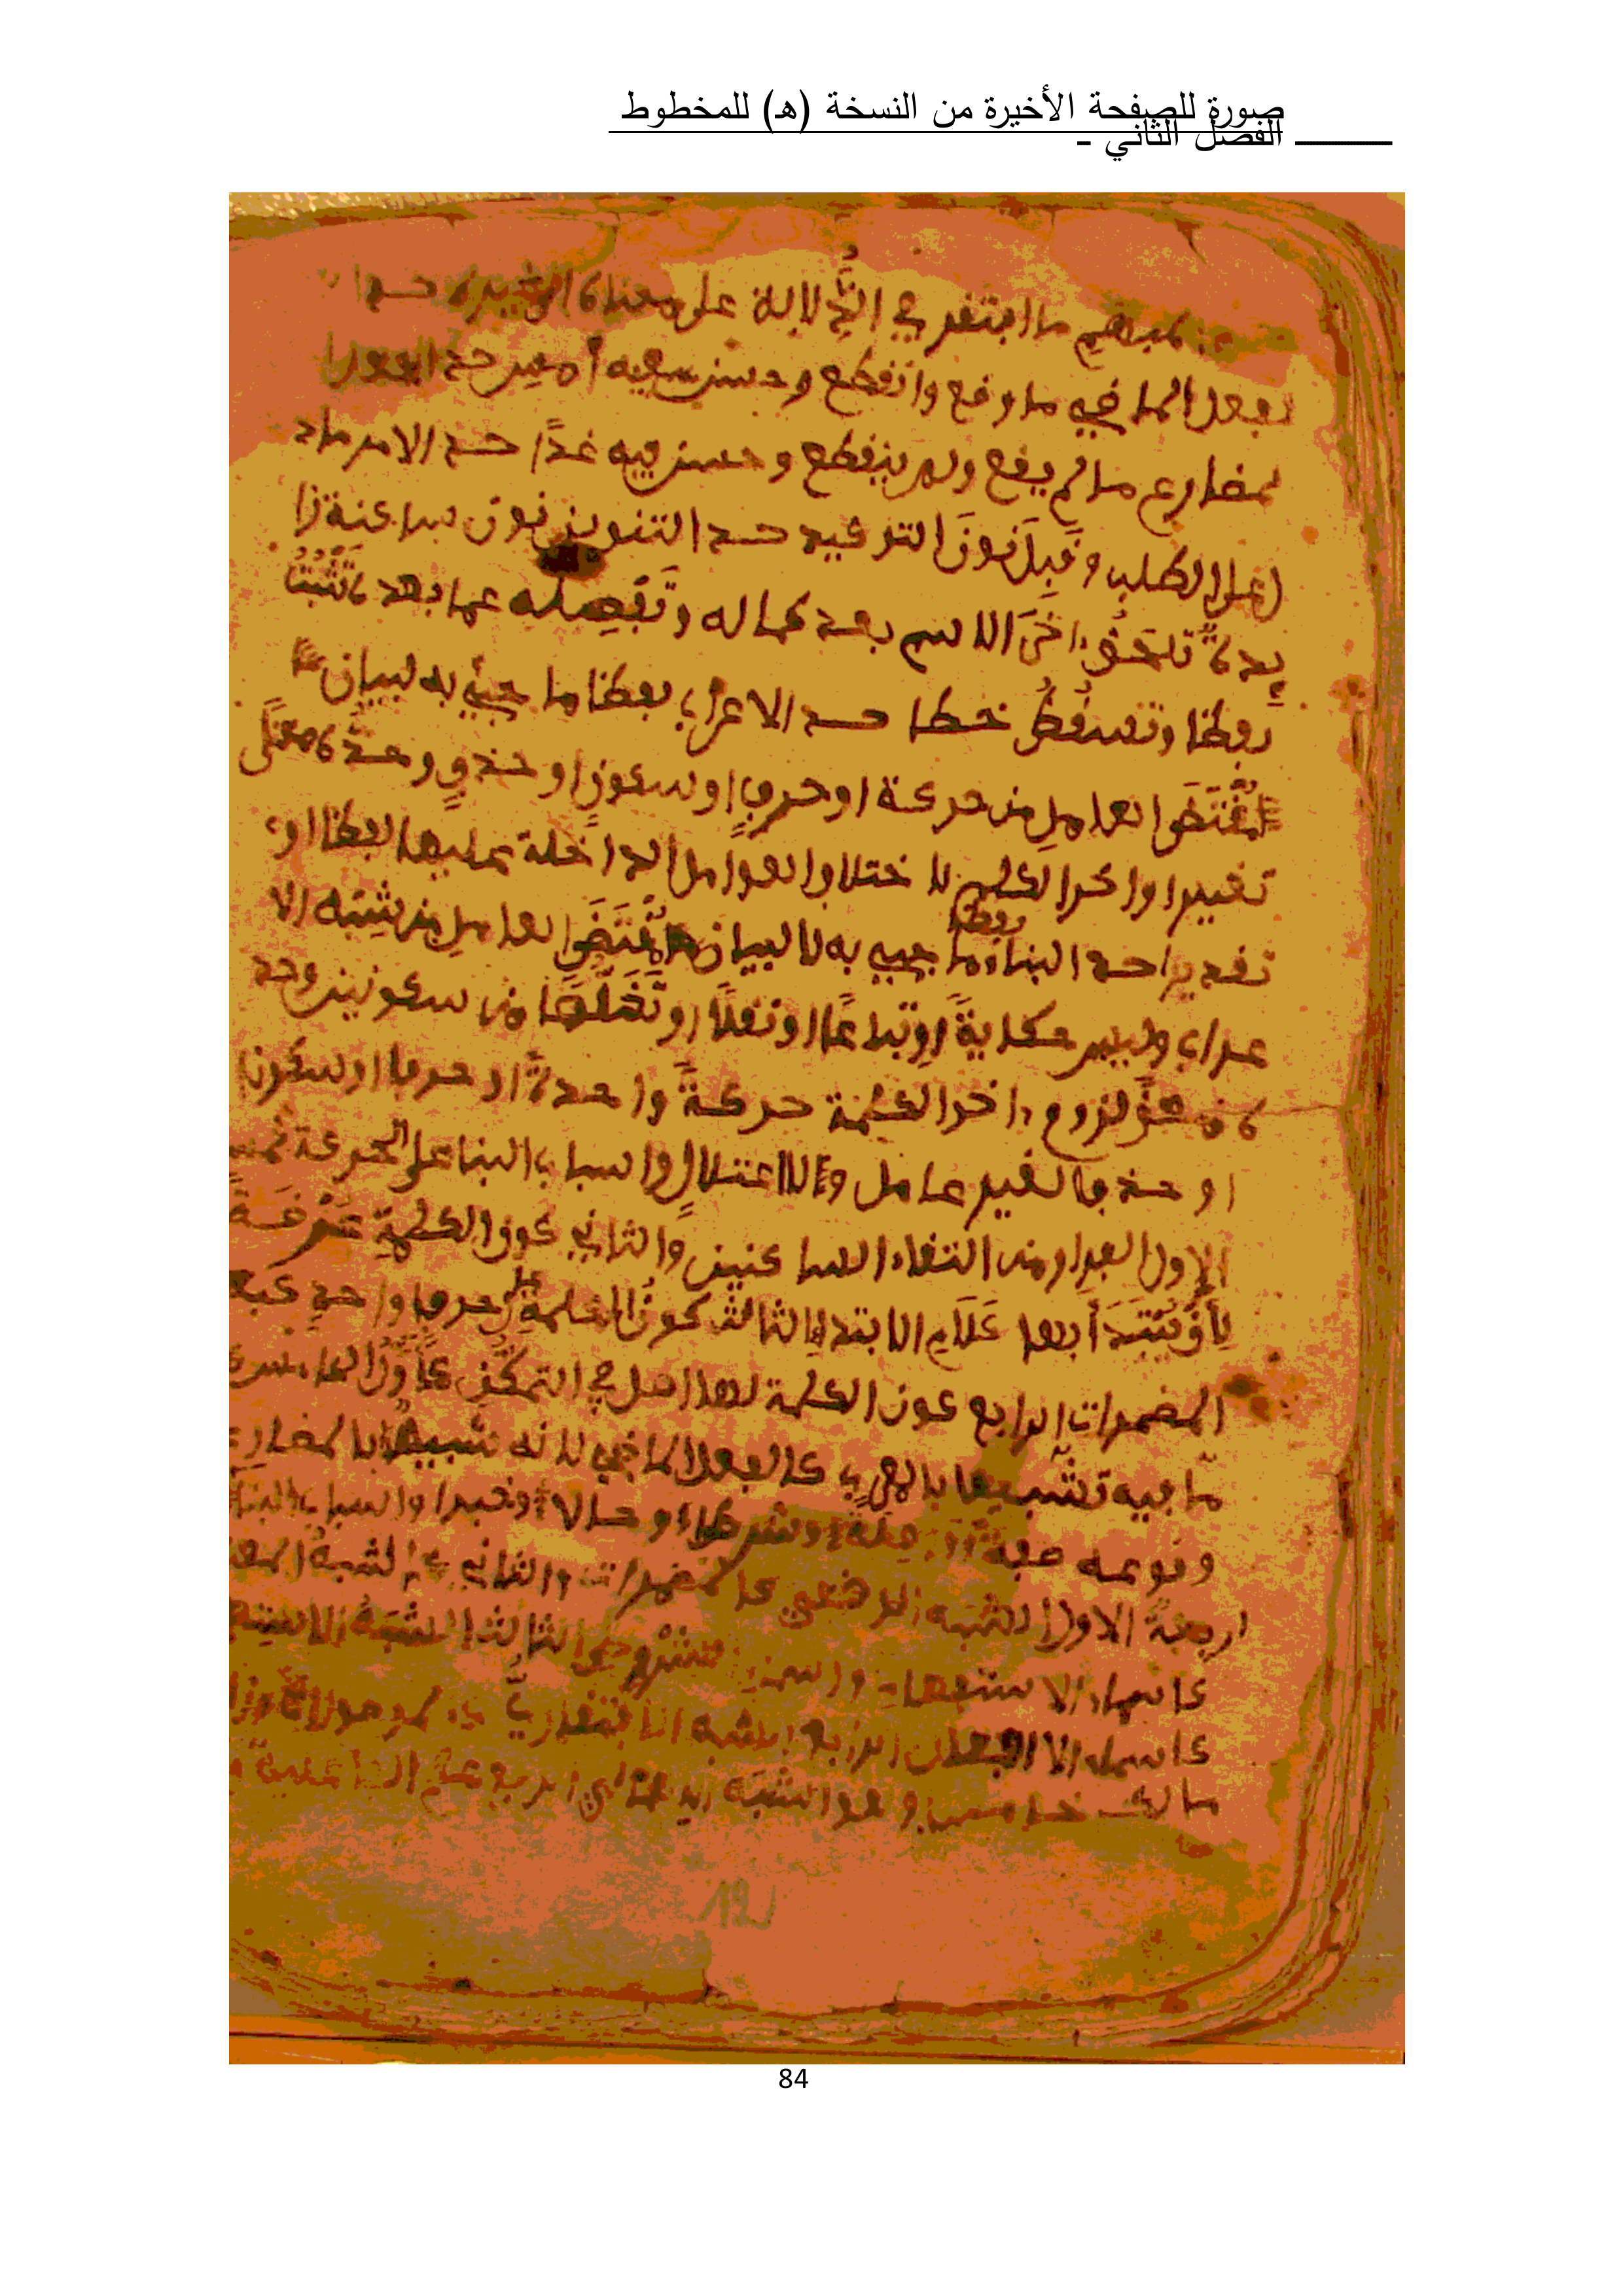 صورة للصفحة الأخيرة من النسخة (هـ) للمخطوط
الفصل الثاني -
ما افتقر في الدلالة على معناه
الماضي ما وقع وانقطع وحسن فيه أمس حد الفعل
لمضارع ما لم يقع ولم ينقطع وحسن فيه غدًا حد الامر ما د
على الطلب وقبل نون التوكيد حد التنوين نون ساكنة زا
يدة تلحق اخر الاسم بعد كماله وتفصله عما بعده تثبت
لفظا وتسقط خطا حد الاعراب لفظا ما جيئ به لبيان
مقتضى العامل من حركة او حرف او سكون او حذف وحده معنًى
تغيير اواخر الكلم لاختلاف العوامل الداخلة عليها لفظا او
تقديرا حد البناء لفظا ما جيء به لا لبيان مقتضى العامل من شبه الا
عراب وليس حكاية او اتباعا او نقلا او تخلصا من سكونين وحد
ه لزوم اخر الكلمة حركة واحدة او حرفا او سكونا
او حذفا لغير عامل ولا اعتلال واسباب البنا على الحركة خمسة
الاول الفرار من التقاء الساكنين والثاني كون الكلمة عرضة
لأن يبتدأ بها كلام الابتداء الثالث كون الكلمة على حرف واحد كبعض
المضمرات الرابع كون الكلمة لها اصل في التمكن
ما فيه تشبيها بالمعرب كالفعل الماضي لانه شبيه بالمضارع
وقوعه صفة وصلة وشرطا وحالا وخبرا واسباب البناء
اربعة الاول الشبه الوضعي كالمضمرات والثاني الشبه المعنوي
كاسماء الاستفهام الثالث الشبه
كاسماء الافعال الرابع الشبه الافتقاري
مالك خامس وهو الشبه
84